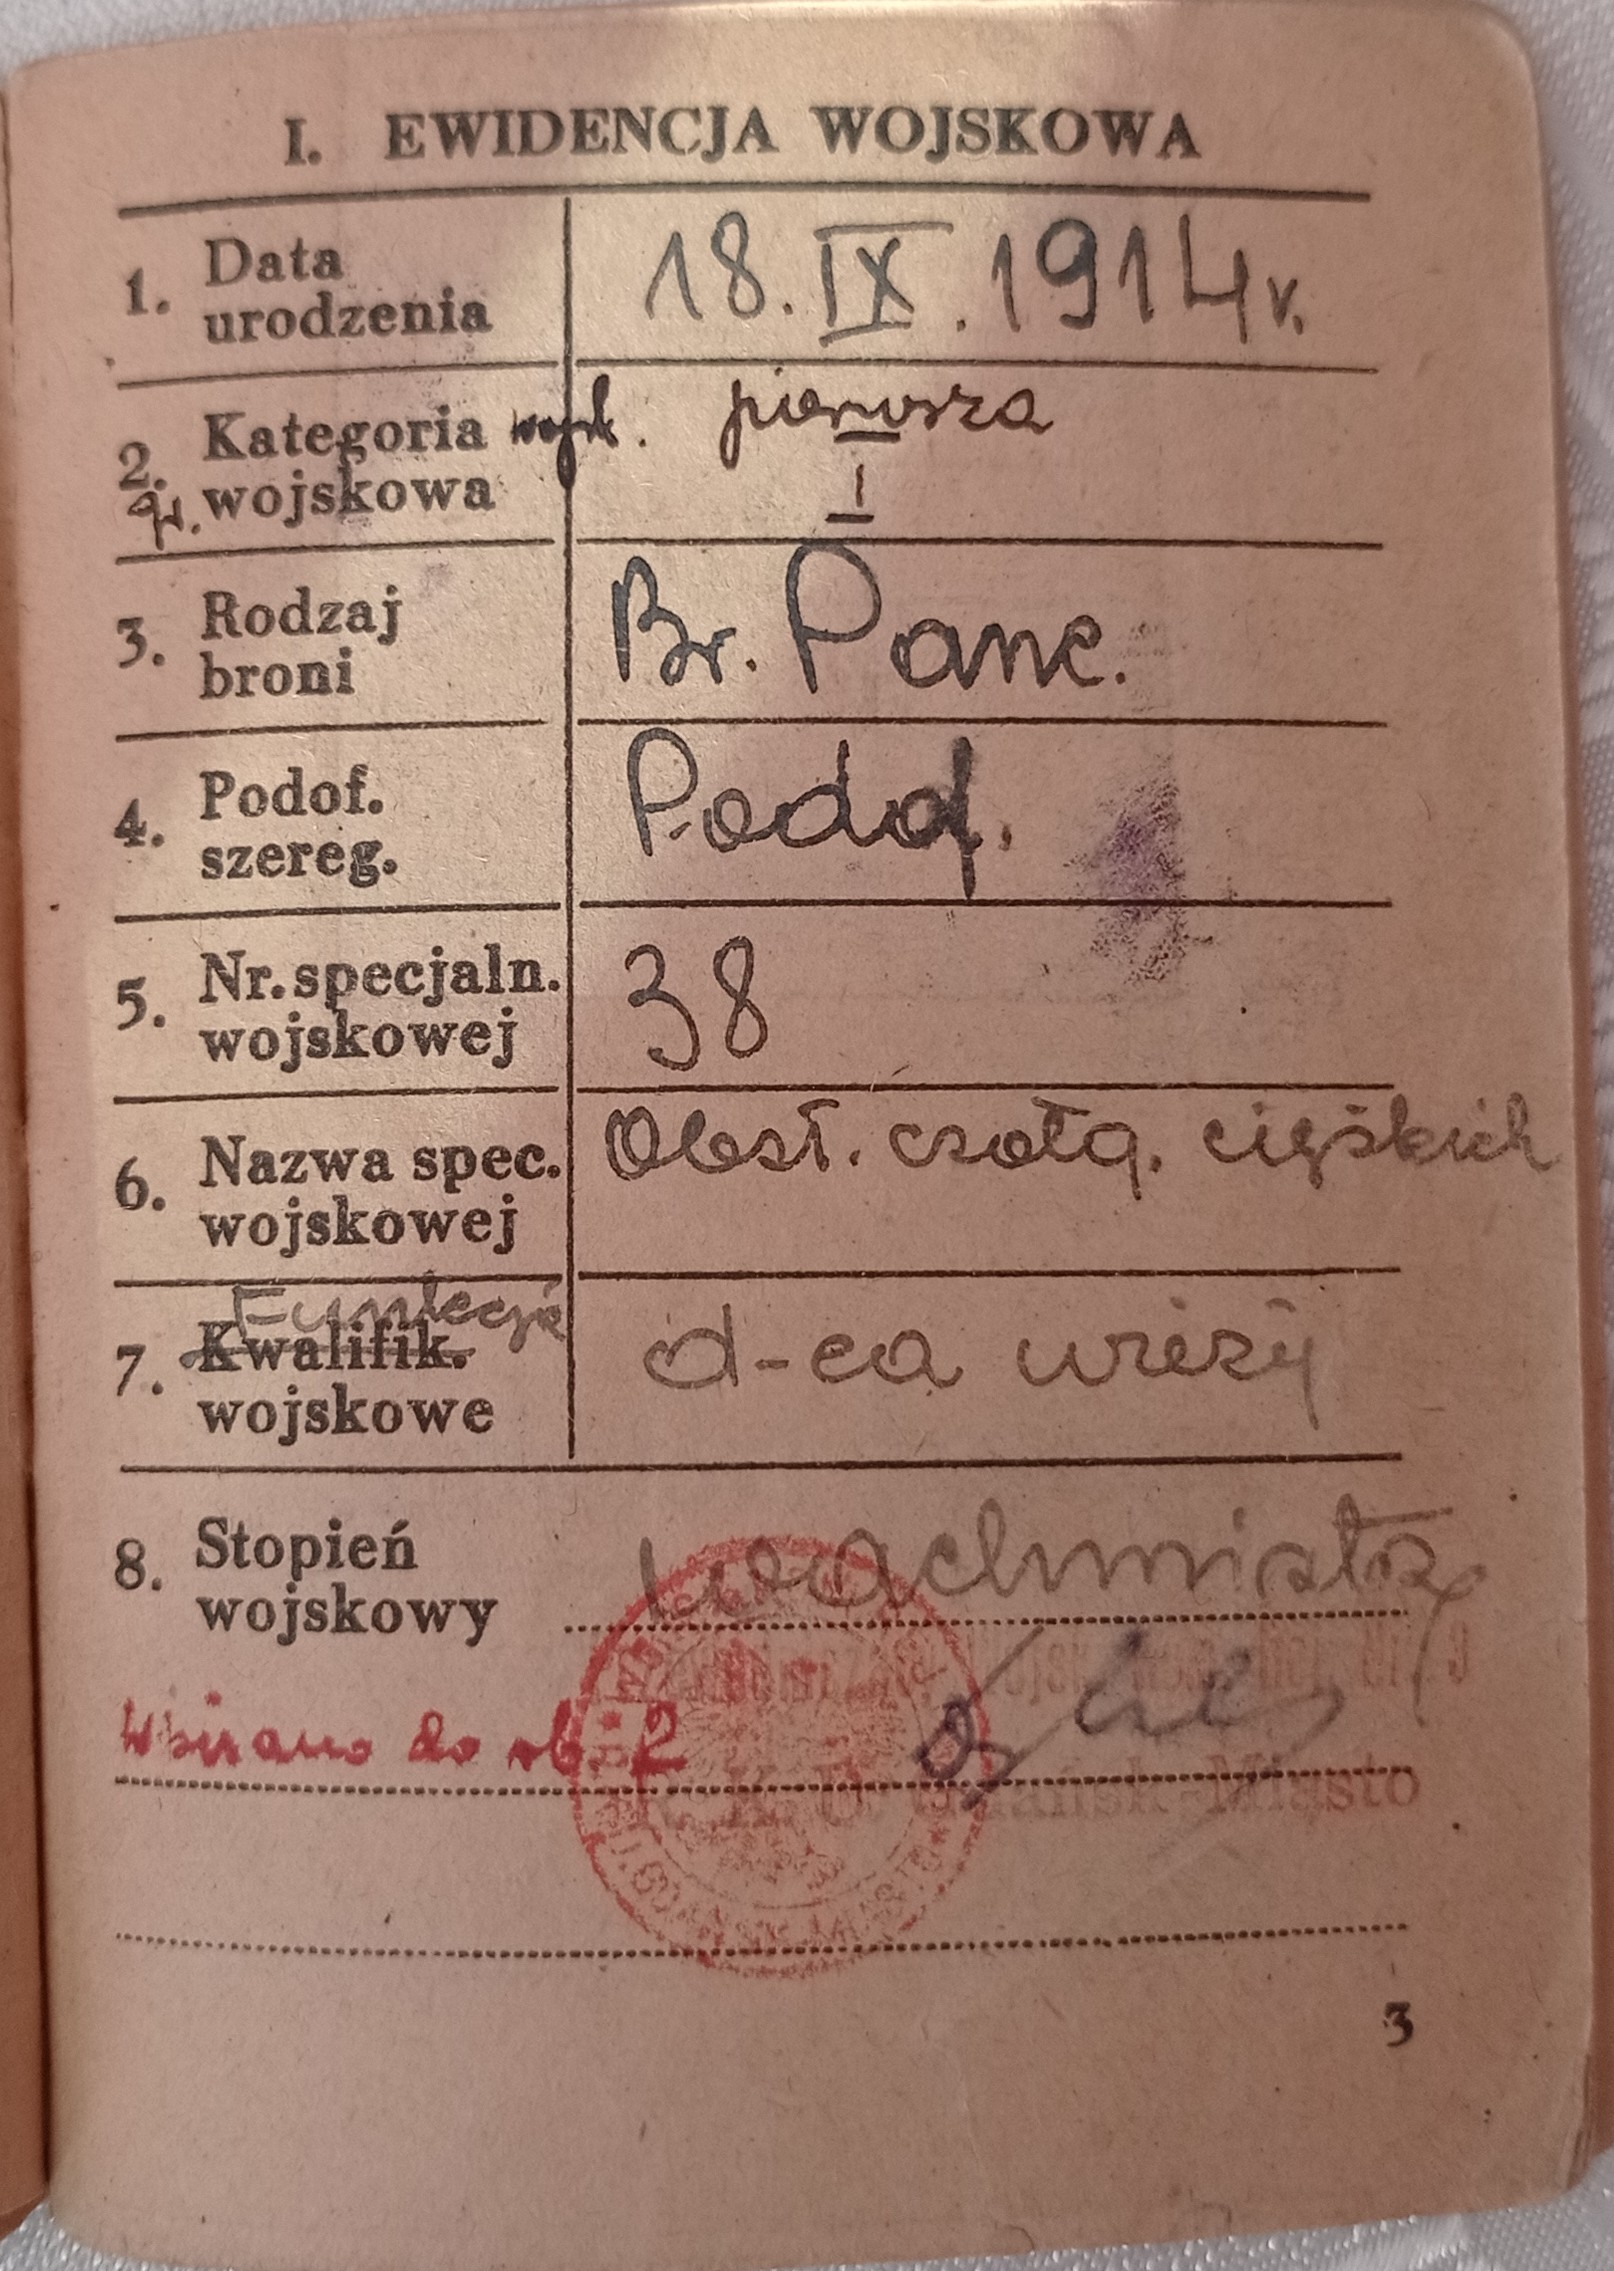 I. EWIDENCJA WOJSKOWA
1. Data urodzenia
18.IX.1914 r.
2. Kategoria wojskowa
pierwsza
I
3. Rodzaj broni
Br. Panc.
4. Podof. szereg.
Podof.
5. Nr. specjaln. wojskowej
38
6. Nazwa spec. wojskowej
Obsł. czołg. ciężkich
Funkcje
7. Kwalifik. wojskowe
d-ca wieży
8. Stopień wojskowy
wachmistrz
Gdańsk-Miasto
3